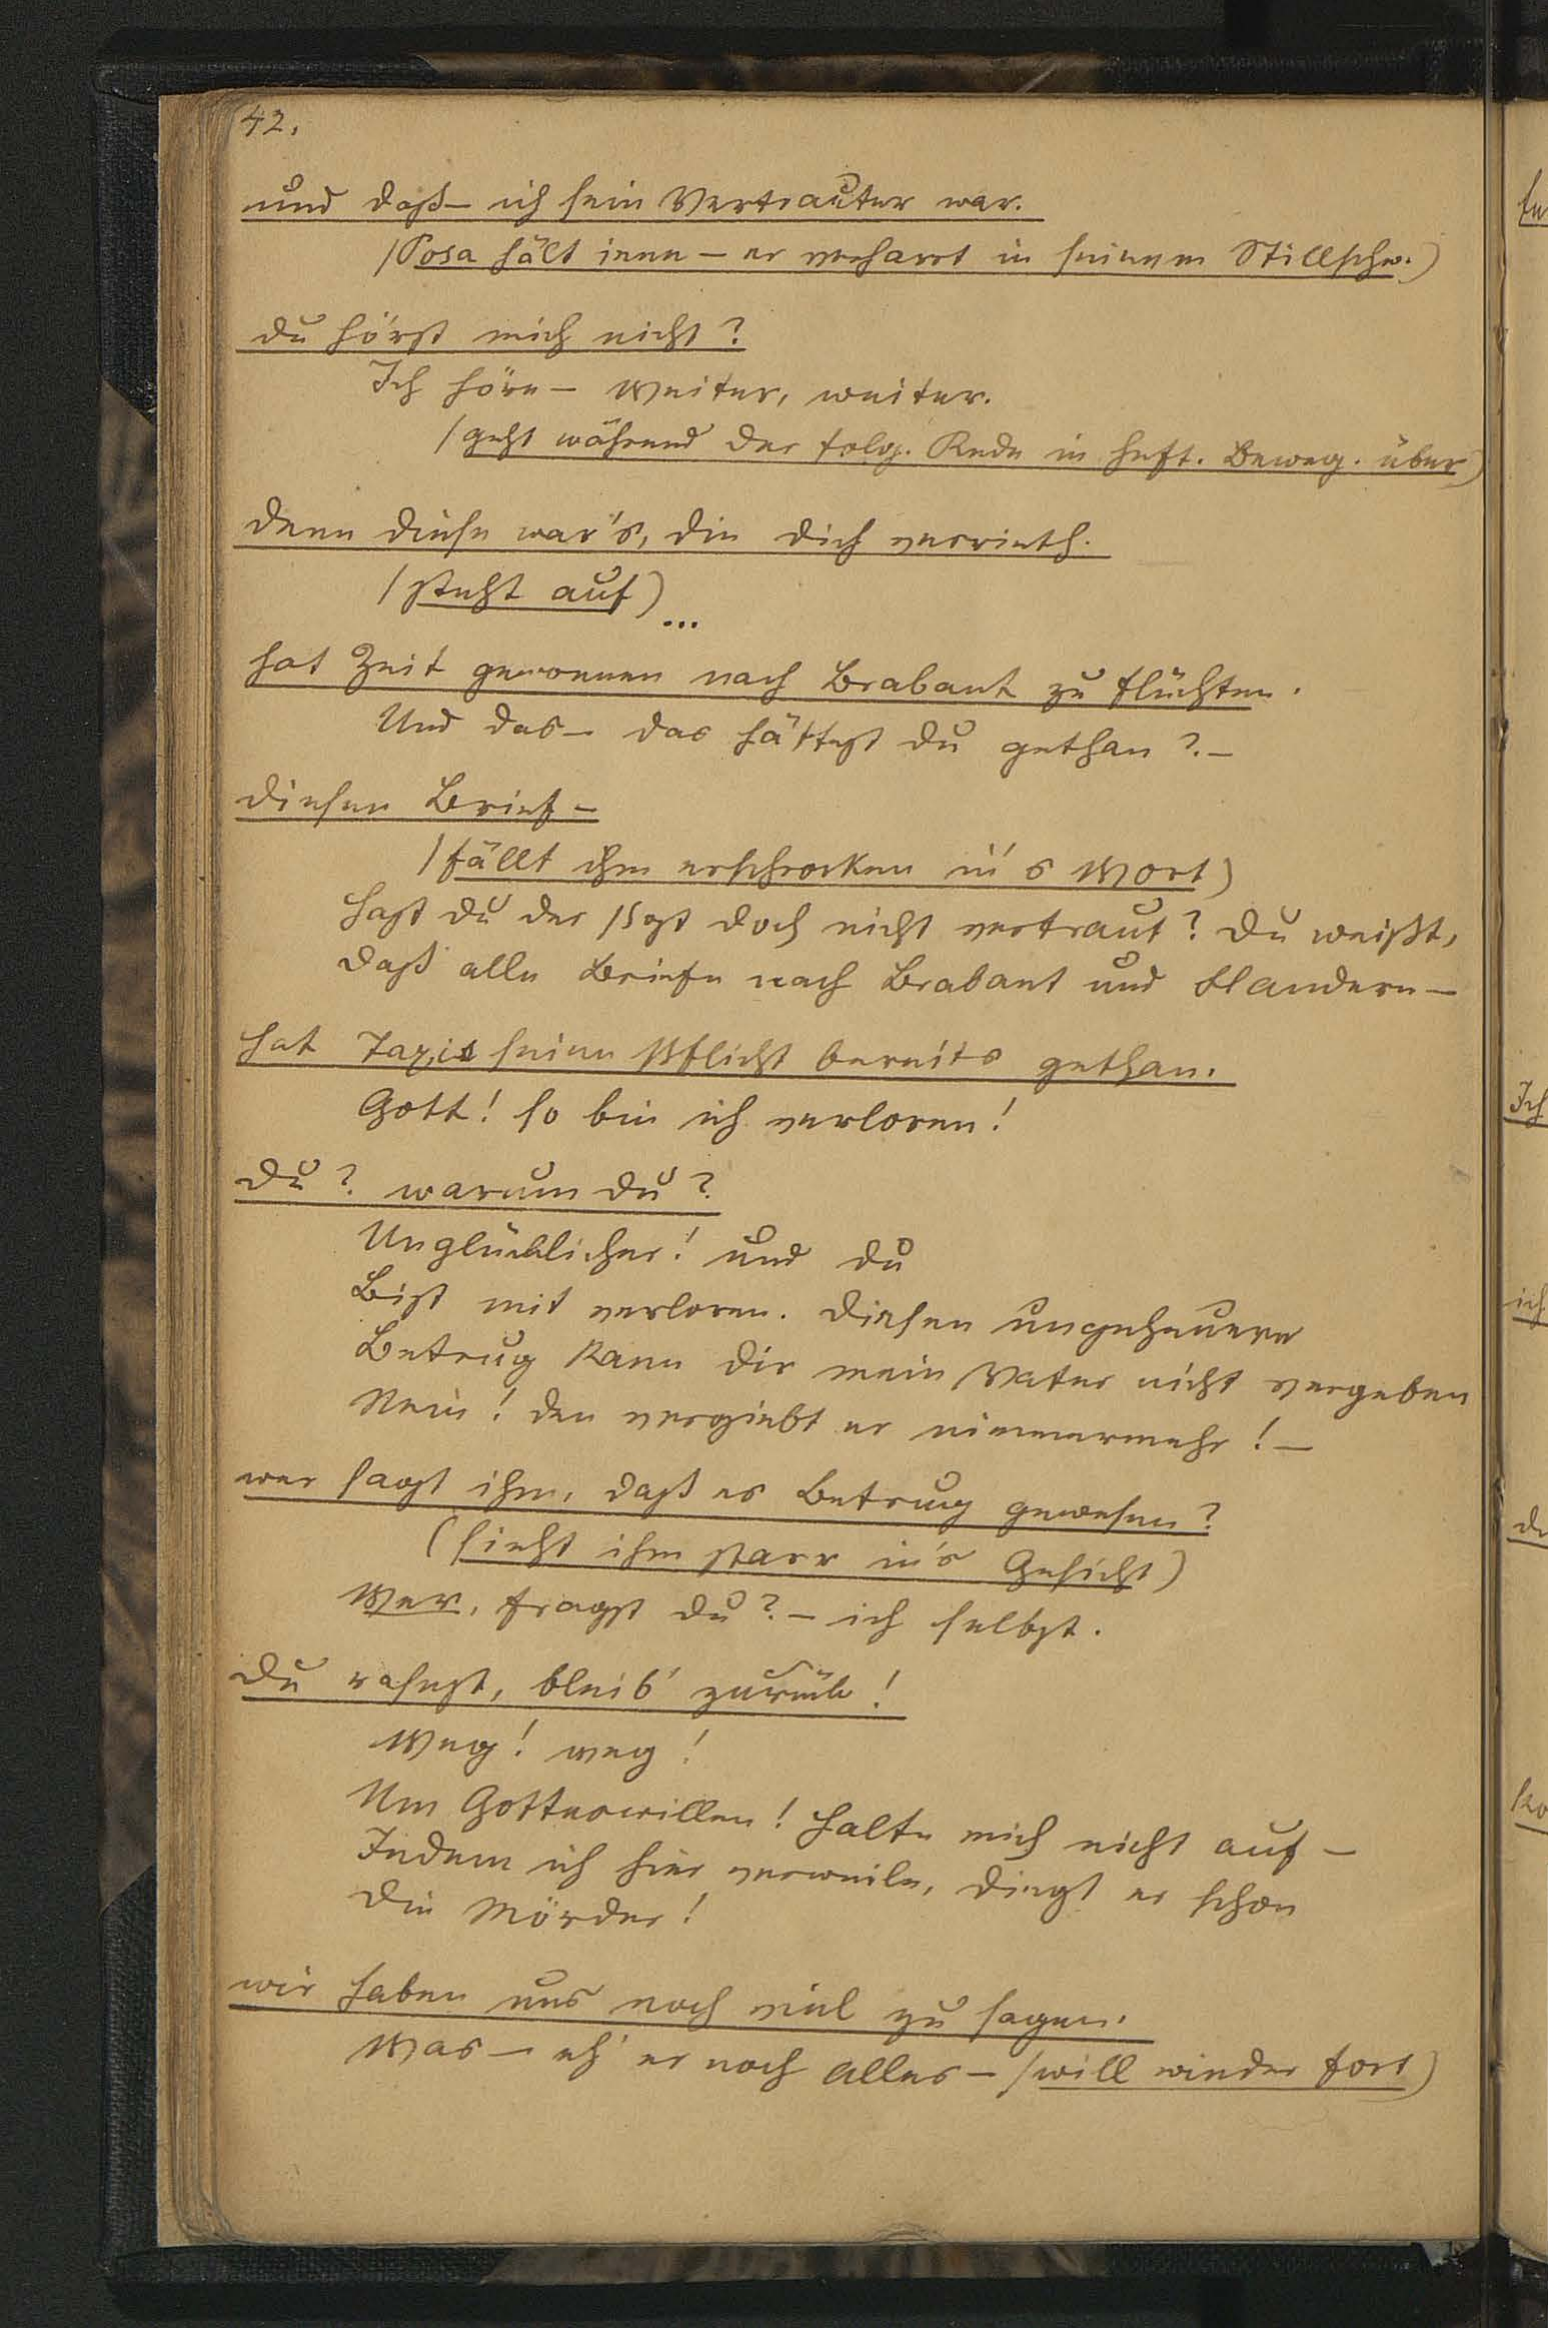 42.
und daß – ich sein Vertrauter war.
(Posa hält inne – er verharrt in seinem Stillschw.)
du hörst mich nicht?
Ich höre – Weiter, weiter.
(geht während der folg. Rede in heft. Beweg. über)
denn diese war's, die dich verrieth.
(steht auf) ...
hat Zeit gewonnen nach Brabant zu flüchten.
Und das – das hättest du gethan? –
diesen Brief –
(fällt ihm erschrocken in's Wort)
Hast du der Post doch nicht vertraut? Du weißt,
daß alle Briefe nach Brabant und Flandern –
hat Taxis seine Pflicht bereits gethan.
Gott! so bin ich verloren!
Du? warum du?
Unglücklicher! und du
Bist mit verloren. Diesen ungeheuern
Betrug kann dir mein Vater nicht vergeben
Nein! den vergiebt er nimmermehr! –
wer sagt ihm, daß es Betrug gewesen?
(sieht ihm starr in's Gesicht)
Wer, fragst du? – ich selbst.
Du rasest, bleib' zurück!
Weg! weg!
Um Gotteswillen! Halte mich nicht auf –
Indem ich hier verweile, dingt er schon
Die Mörder!
wir haben uns noch viel zu sagen.
Was – eh' er noch alles – (will wieder fort)
Ich
ich